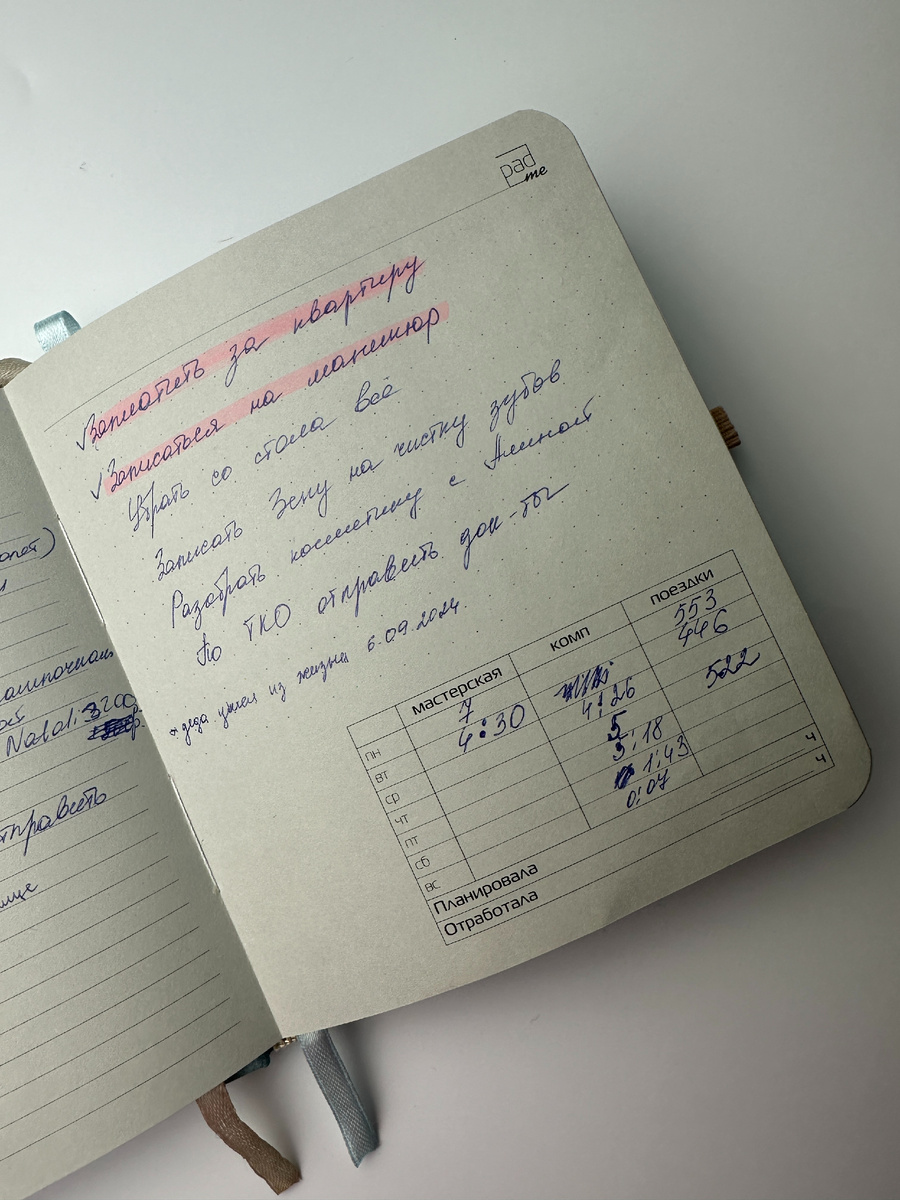 pad
me
√Заплатить за квартиру
√Записаться на маникюр
Убрать со стола всё
Записать Зену на чистку зубов
Разобрать косметику с Алиной
По ТКО отправить док-ты
* деда ушел из жизни 6.09.2024.
мастерская комп поездки
пн 7 553
вт 4:30 4:26 446
ср 5
чт 3:18 522
пт 1:43
сб 0:07
вс
Планировала ч
Отработала ч
Natali 3200